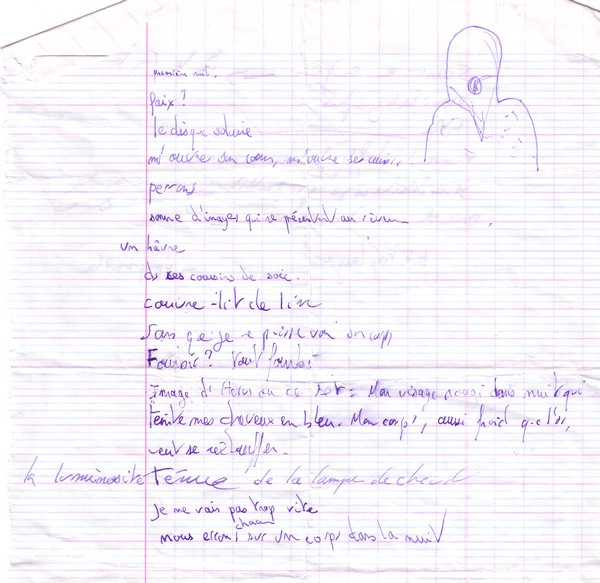 première nuit.
paix ?
le disque solaire
m'ouvre son coeur, m'ouvre ses
perrons
somme d'images qui se présentent au rêveur
un hâvre
de ses coussins de soie.
couvre-lit de lin
Sans que je puisse voir son corps
Fouloir ? Tout
Image d'Horus ou de Set : Mon visage dans nuit qui
teinte mes cheveux en bleu. Mon corps, aussi froid que l'or,
veut se réchauffer.
la luminosité ténue de la lampe de chevet
je ne vais pas trop vite
chacun
nous errons sur un corps dans la nuit